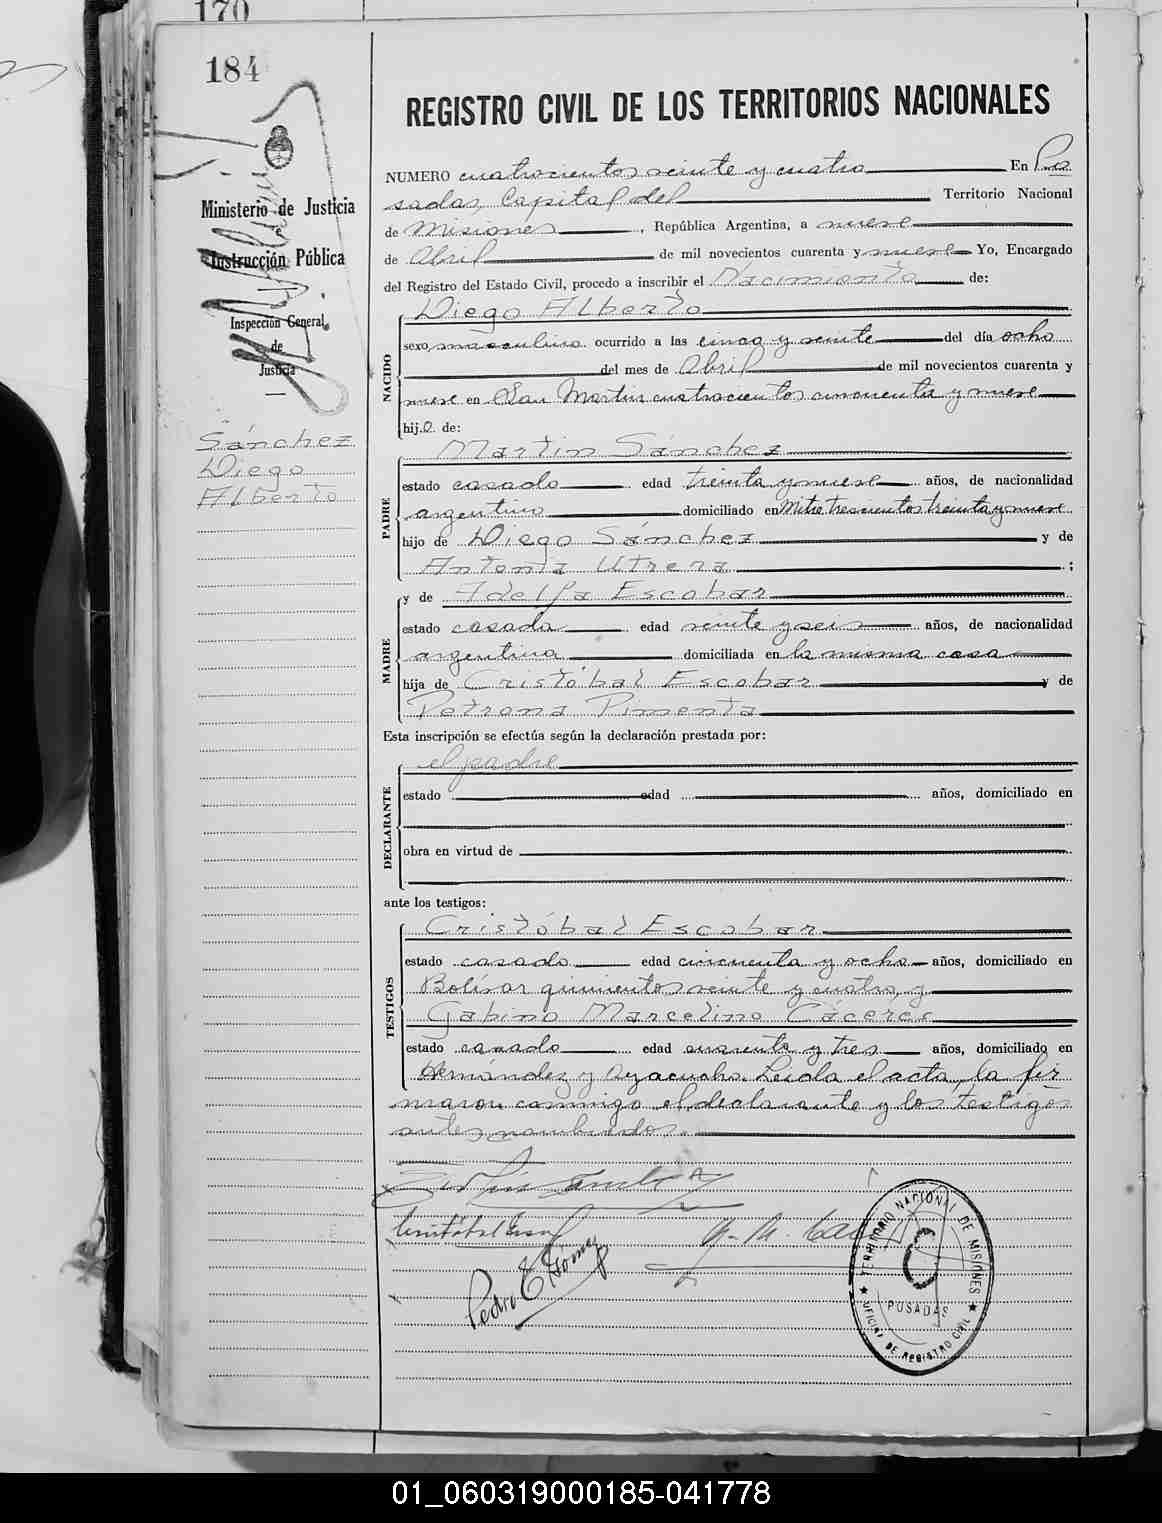 170
184
REGISTRO CIVIL DE LOS TERRITORIOS NACIONALES
Ministerio de Justicia
Instrucción Pública
Inspección General
de
Justicia
Sánchez
Diego
Alberto
NUMERO cuatrocientos veinte y cuatro En Po
sadas, Capital del Territorio Nacional
de Misiones, República Argentina, a nueve
de Abril de mil novecientos cuarenta y nueve Yo, Encargado
del Registro del Estado Civil, procedo a inscribir el Nacimiento de:
NACIDO
Diego Alberto
sexo masculino ocurrido a las cinco y veinte del día ocho
del mes de Abril de mil novecientos cuarenta y
nueve en San Martín cuatrocientos cincuenta y nueve
hijo de:
PADRE
Martín Sánchez
estado casado edad treinta y nueve años, de nacionalidad
argentino domiciliado en Mitre trescientos treinta y nueve
hijo de Diego Sánchez y de
Antonia Utrera ;
MADRE
y de Idelfa Escobar
estado casada edad veinte y seis años, de nacionalidad
argentina domiciliada en la misma casa
hija de Cristóbal Escobar y de
Petrona Pimenta
Esta inscripción se efectúa según la declaración prestada por:
DECLARANTE
el padre
estado edad años, domiciliado en
obra en virtud de
ante los testigos:
TESTIGOS
Cristóbal Escobar
estado casado edad cincuenta y ocho años, domiciliado en
Bolívar quinientos veinte y cuatro, y
Gabino Marcelino Cáceres
estado casado edad cuarenta y tres años, domiciliado en
Hernández y Ayacucho. Leída el acta, la fir
maron conmigo el declarante y los testigos
antes nombrados.
Pedro E. Gómez
TERRITORIO NACIONAL DE MISIONES
POSADAS
OFICINA DE REGISTRO CIVIL
01_060319000185-041778